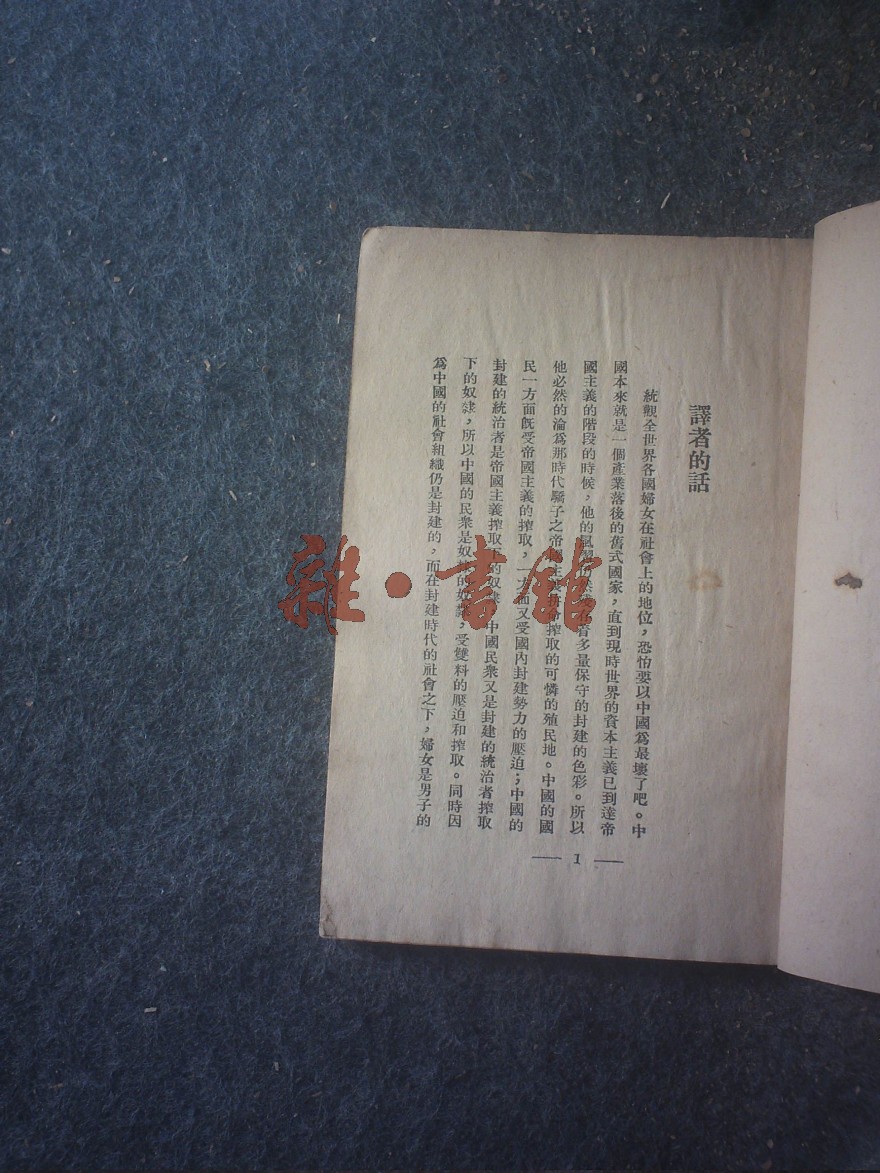 譯者的話
統觀全世界各國婦女在社會上的地位，恐怕要以中國爲最壞了吧。中
國本來就是一個產業落後的舊式國家，直到現時世界的資本主義已到達帝
國主義的階段的時候，他的風着多量保守的封建的色彩。所以
他必然的淪爲那時代驕子之帝國主榨取的可憐的殖民地。中國的國
民一方面旣受帝國主義的搾取，一方面又受國內封建勢力的壓迫；中國的
封建的統治者是帝國主義搾取下的奴隸，中國民衆又是封建的統治者搾取
下的奴隸，所以中國的民衆是奴隸的奴隸，受雙料的壓迫和搾取。同時因
爲中國的社會組織仍是封建的，而在封建時代的社會之下，婦女是男子的
1
雜·書館